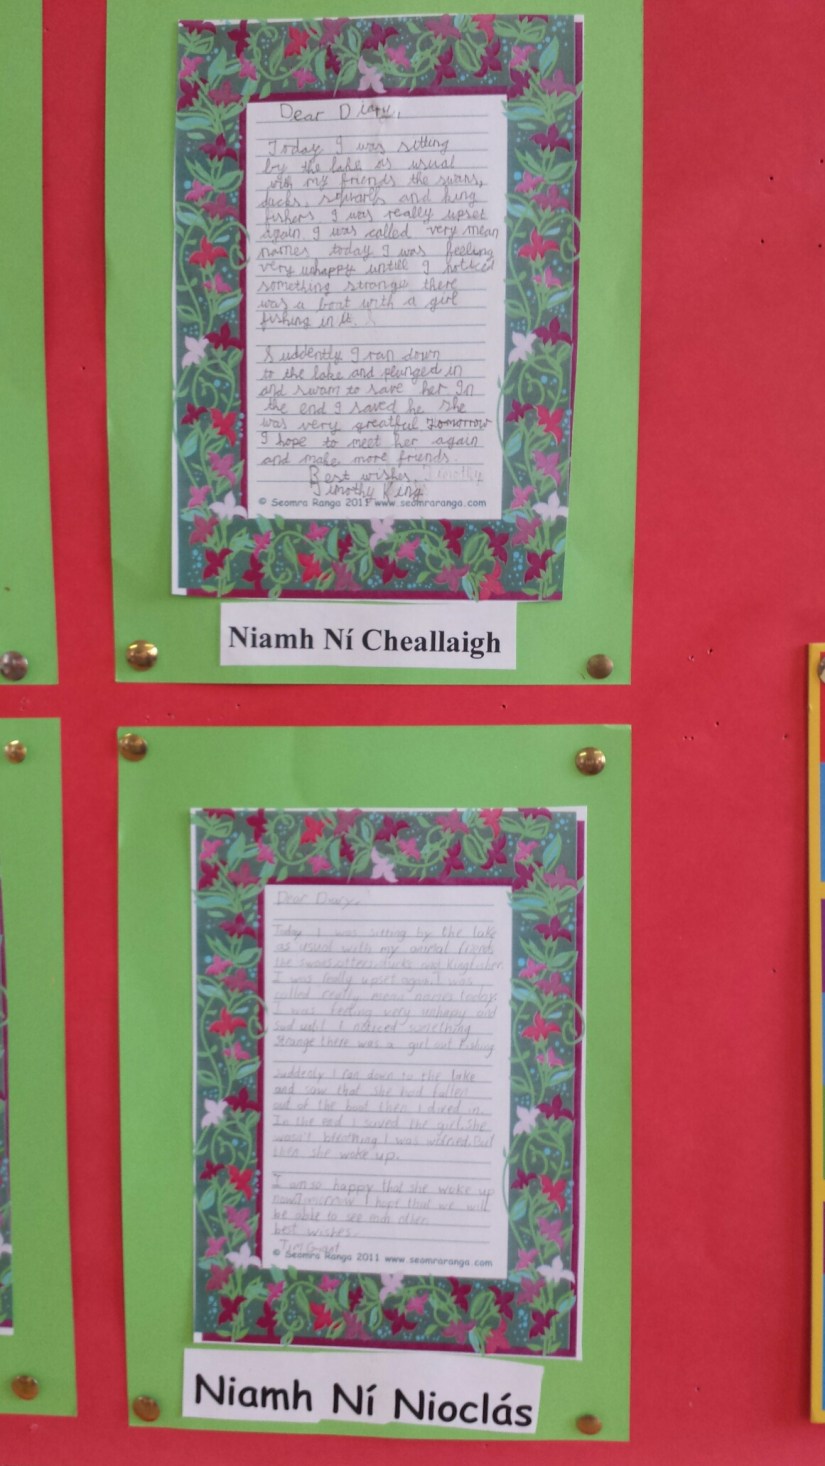 Dear Diary,
Today I was sitting
by the lake as usual
with my friends the swans,
ducks, and king
fishers I was really upset
again I was called very mean
names today I was feeling
very unhappy untill I noticed
something strange there
was a boat with a girl
fishing in it.
Suddently I ran down
to the lake and plunged in
and swam to save her In
the end I saved he she
was very greatful Tomorrow
I hope to meet her again
and make more friends
Best wishes, Timothy
Timothy King
© Seomra Ranga 2011 www.seomraranga.com
Niamh Ní Cheallaigh
Dear Diary,
Today I was sitting by the lake
as usual with my animal friends
the swans, otters, ducks and kingfisher
I was really upset again. I was
called really mean names today.
I was feeling very unhappy and
sad until I noticed something
strange there was a girl out fishing
Suddenly I ran down to the lake
and saw that she had fallen
out of the boat then I dived in.
In the end I saved the girl. She
wasn't breathing I was worried. But
then she woke up.
I am so happy that she woke up
now. Tomorrow I hope that we will
be able to see each other
best wishes.
Tim
© Seomra Ranga 2011 www.seomraranga.com
Niamh Ní Nioclás